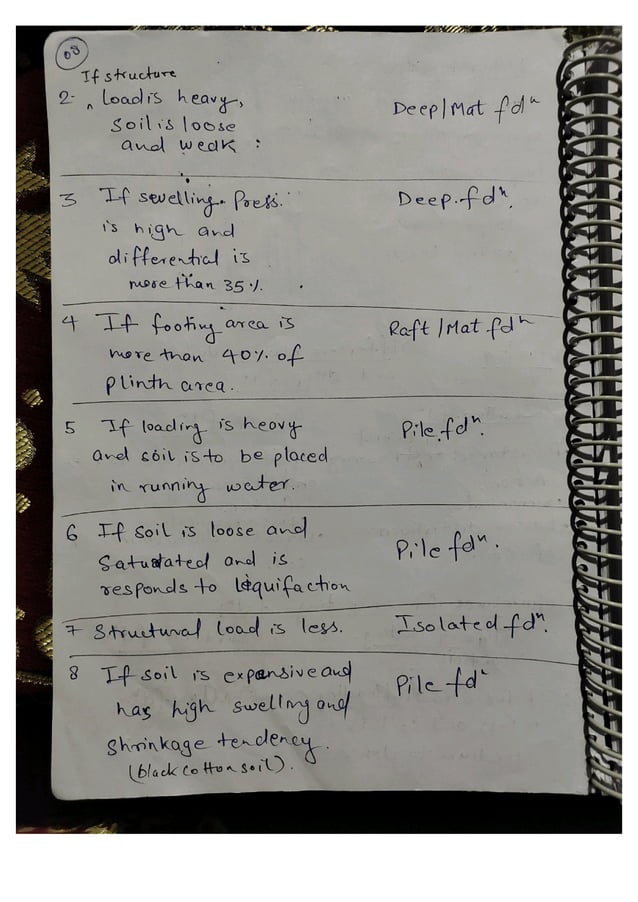 08
If structure
2- ^ Load is heavy, Deep/Mat fdn
Soil is loose
and weak :
3 If swelling. Press. Deep. fdn.
is high and
differential is
more than 35%.
4 If footing area is Raft/Mat fdn
more than 40% of
plinth area.
5 If loading is heavy Pile. fdn.
and soil is to be placed
in running water.
6 If soil is loose and Pile fdn.
Saturated and is
responds to liquifaction
7 Structural load is less. Isolated fdn.
8 If soil is expansive and Pile fdn
has high swelling and
shrinkage tendency.
(black cotton soil).